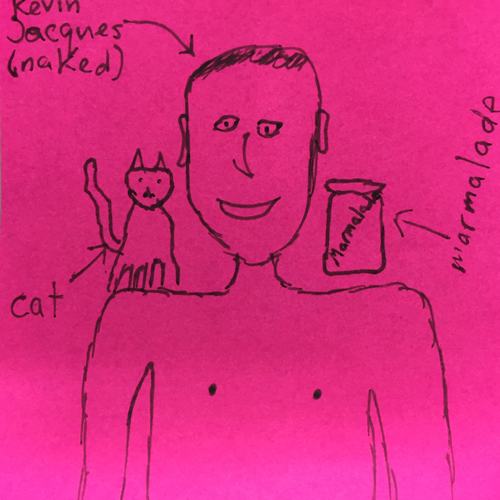 Kevin
Jacques
(naked)
cat
Marmalade
marmalade